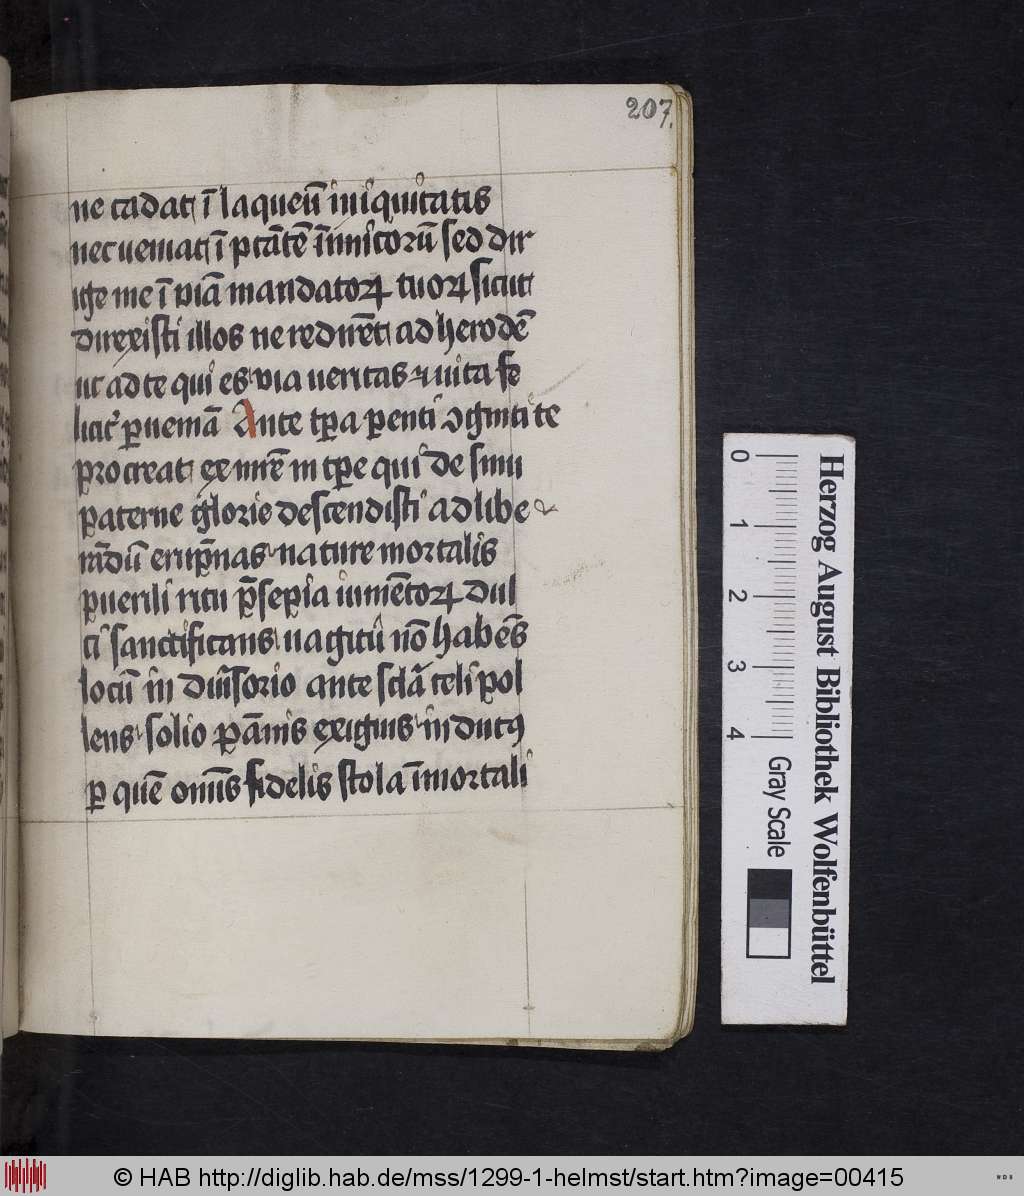 207.
ne cadat ī laqueū iniquitatis
nec ueniat ī ptātē īimicorū sed dir
ige me ī viā mandatoꝝ tuoꝝ sicut
direxisti illos ne redirēt ad herodē
ut ad te qui es via ueritas ⁊ uita fe
licit᷑ ꝑueniā Ante tꝑa ꝑenti ꝯgniti te
procreat ex
in tꝑe qui de sinu
paterne glorie descendisti ad libe
rādū
nature mortalis
puerili ritu p̄sepia iumētoꝝ dul
ci sanctificans uagitu nō habēs
locū in diu̅sorio ante sclā celi pol
lens solio pānis exiguis indutꝰ
ꝑ quē om̅s fidelis stola īmortali
Herzog August Bibliothek Wolfenbüttel
0 1 2 3 4 Gray Scale
© HAB http://diglib.hab.de/mss/1299-1-helmst/start.htm?image=00415